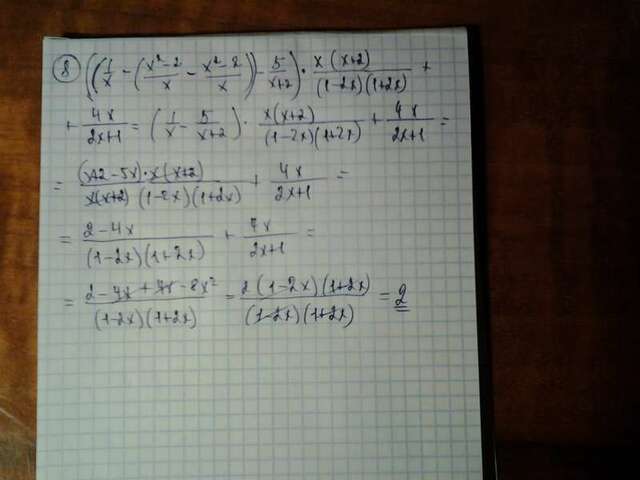 8 ((1/x - (x²-2/x - x²-2/x)) - 5/x+2) · x(x+2)/(1-2x)(1+2x) +
+ 4x/2x+1 = (1/x - 5/x+2) · x(x+2)/(1-2x)(1+2x) + 4x/2x+1 =
= (x+2-5x)·x(x+2)/x(x+2)(1-2x)(1+2x) + 4x/2x+1 =
= 2-4x/(1-2x)(1+2x) + 4x/2x+1 =
= 2-4x+4x-8x²/(1-2x)(1+2x) = 2(1-2x)(1+2x)/(1-2x)(1+2x) = 2